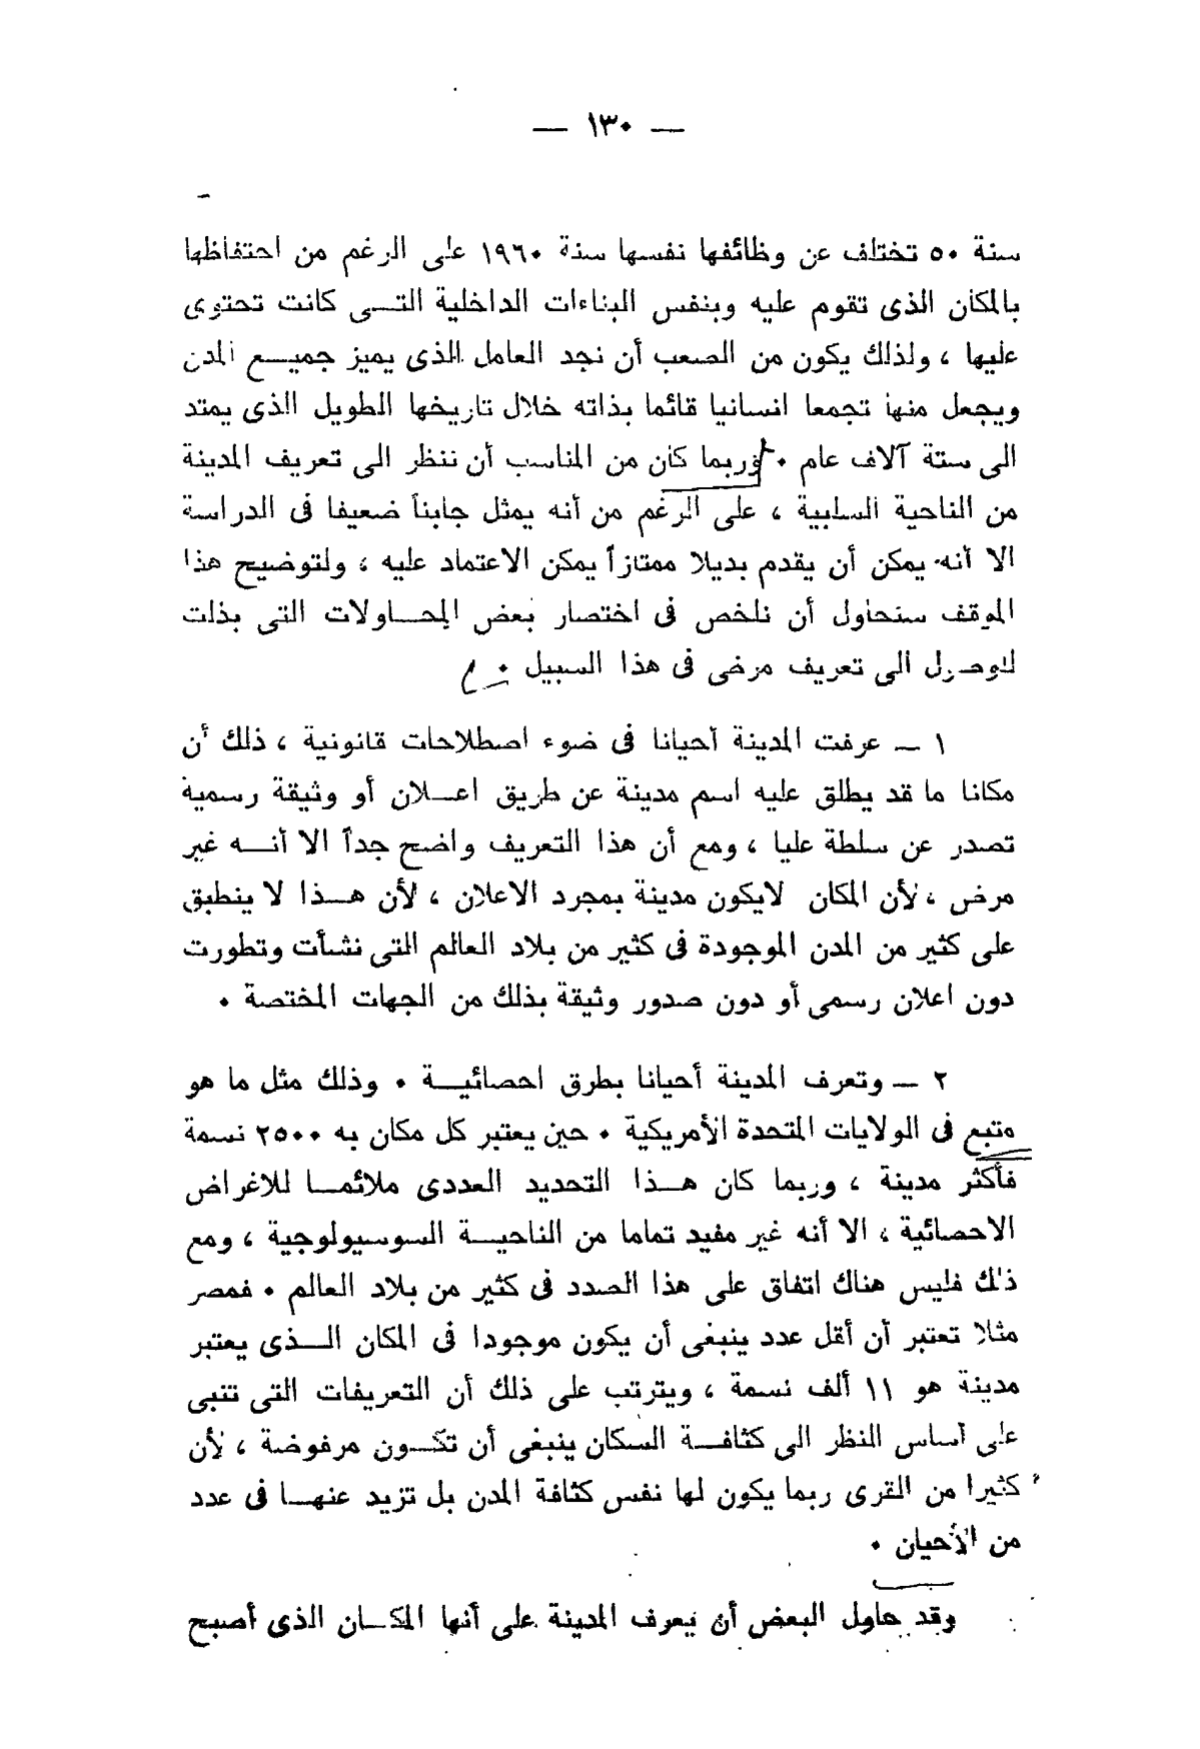 — ١٣٠ —
سنة ٥٠ تختلف عن وظائفها نفسها سنة ١٩٦٠ على الرغم من احتفاظها
بالمكان الذى تقوم عليه وبنفس البناءات الداخلية التـــى كانت تحتوى
عليها ، ولذلك يكون من الصعب أن نجد العامل الذى يميز جميـــع المدن
ويجعل منها تجمعا انسانيا قائما بذاته خلال تاريخها الطويل الذى يمتد
الى ستة آلاف عام ٠ وربما كان من المناسب أن ننظر الى تعريف المدينة
من الناحية السلبية ، على الرغم من أنه يمثل جابناً ضعيفا فى الدراسة
الا أنه يمكن أن يقدم بديلا ممتازاً يمكن الاعتماد عليه ، ولتوضيح هذا
الموقف سنحاول أن نلخص فى اختصار بعض المحـــاولات التى بذلت
للوصول الى تعريف مرضى فى هذا السبيل ٠
١ — عرفت المدينة أحيانا فى ضوء اصطلاحات قانونية ، ذلك أن
مكانا ما قد يطلق عليه اسم مدينة عن طريق اعـــلان أو وثيقة رسمية
تصدر عن سلطة عليا ، ومع أن هذا التعريف واضح جداً الا أنـــه غير
مرض ، لأن المكان لايكون مدينة بمجرد الاعلان ، لأن هـــذا لا ينطبق
على كثير من المدن الموجودة فى كثير من بلاد العالم التى نشأت وتطورت
دون اعلان رسمى أو دون صدور وثيقة بذلك من الجهات المختصة ٠
٢ — وتعرف المدينة أحيانا بطرق احصائيـــة ٠ وذلك مثل ما هو
متبع فى الولايات المتحدة الأمريكية ٠ حين يعتبر كل مكان به ٢٥٠٠ نسمة
فأكثر مدينة ، وربما كان هـــذا التحديد العددى ملائمـــا للاغراض
الاحصائية ، الا أنه غير مفيد تماما من الناحيـــة السوسيولوجية ، ومع
ذلك فليس هناك اتفاق على هذا الصدد فى كثير من بلاد العالم ٠ فمصر
مثلا تعتبر أن أقل عدد ينبغى أن يكون موجودا فى المكان الـــذى يعتبر
مدينة هو ١١ ألف نسمة ، ويترتب على ذلك أن التعريفات التى تنبى
على أساس النظر الى كثافـــة السكان ينبغى أن تكـــون مرفوضة ، لأن
كثيرا من القرى ربما يكون لها نفس كثافة المدن بل تزيد عنهـــا فى عدد
من الأحيان ٠
وقد حاول البعض أن يعرف المدينة على أنها المكـــان الذى أصبح